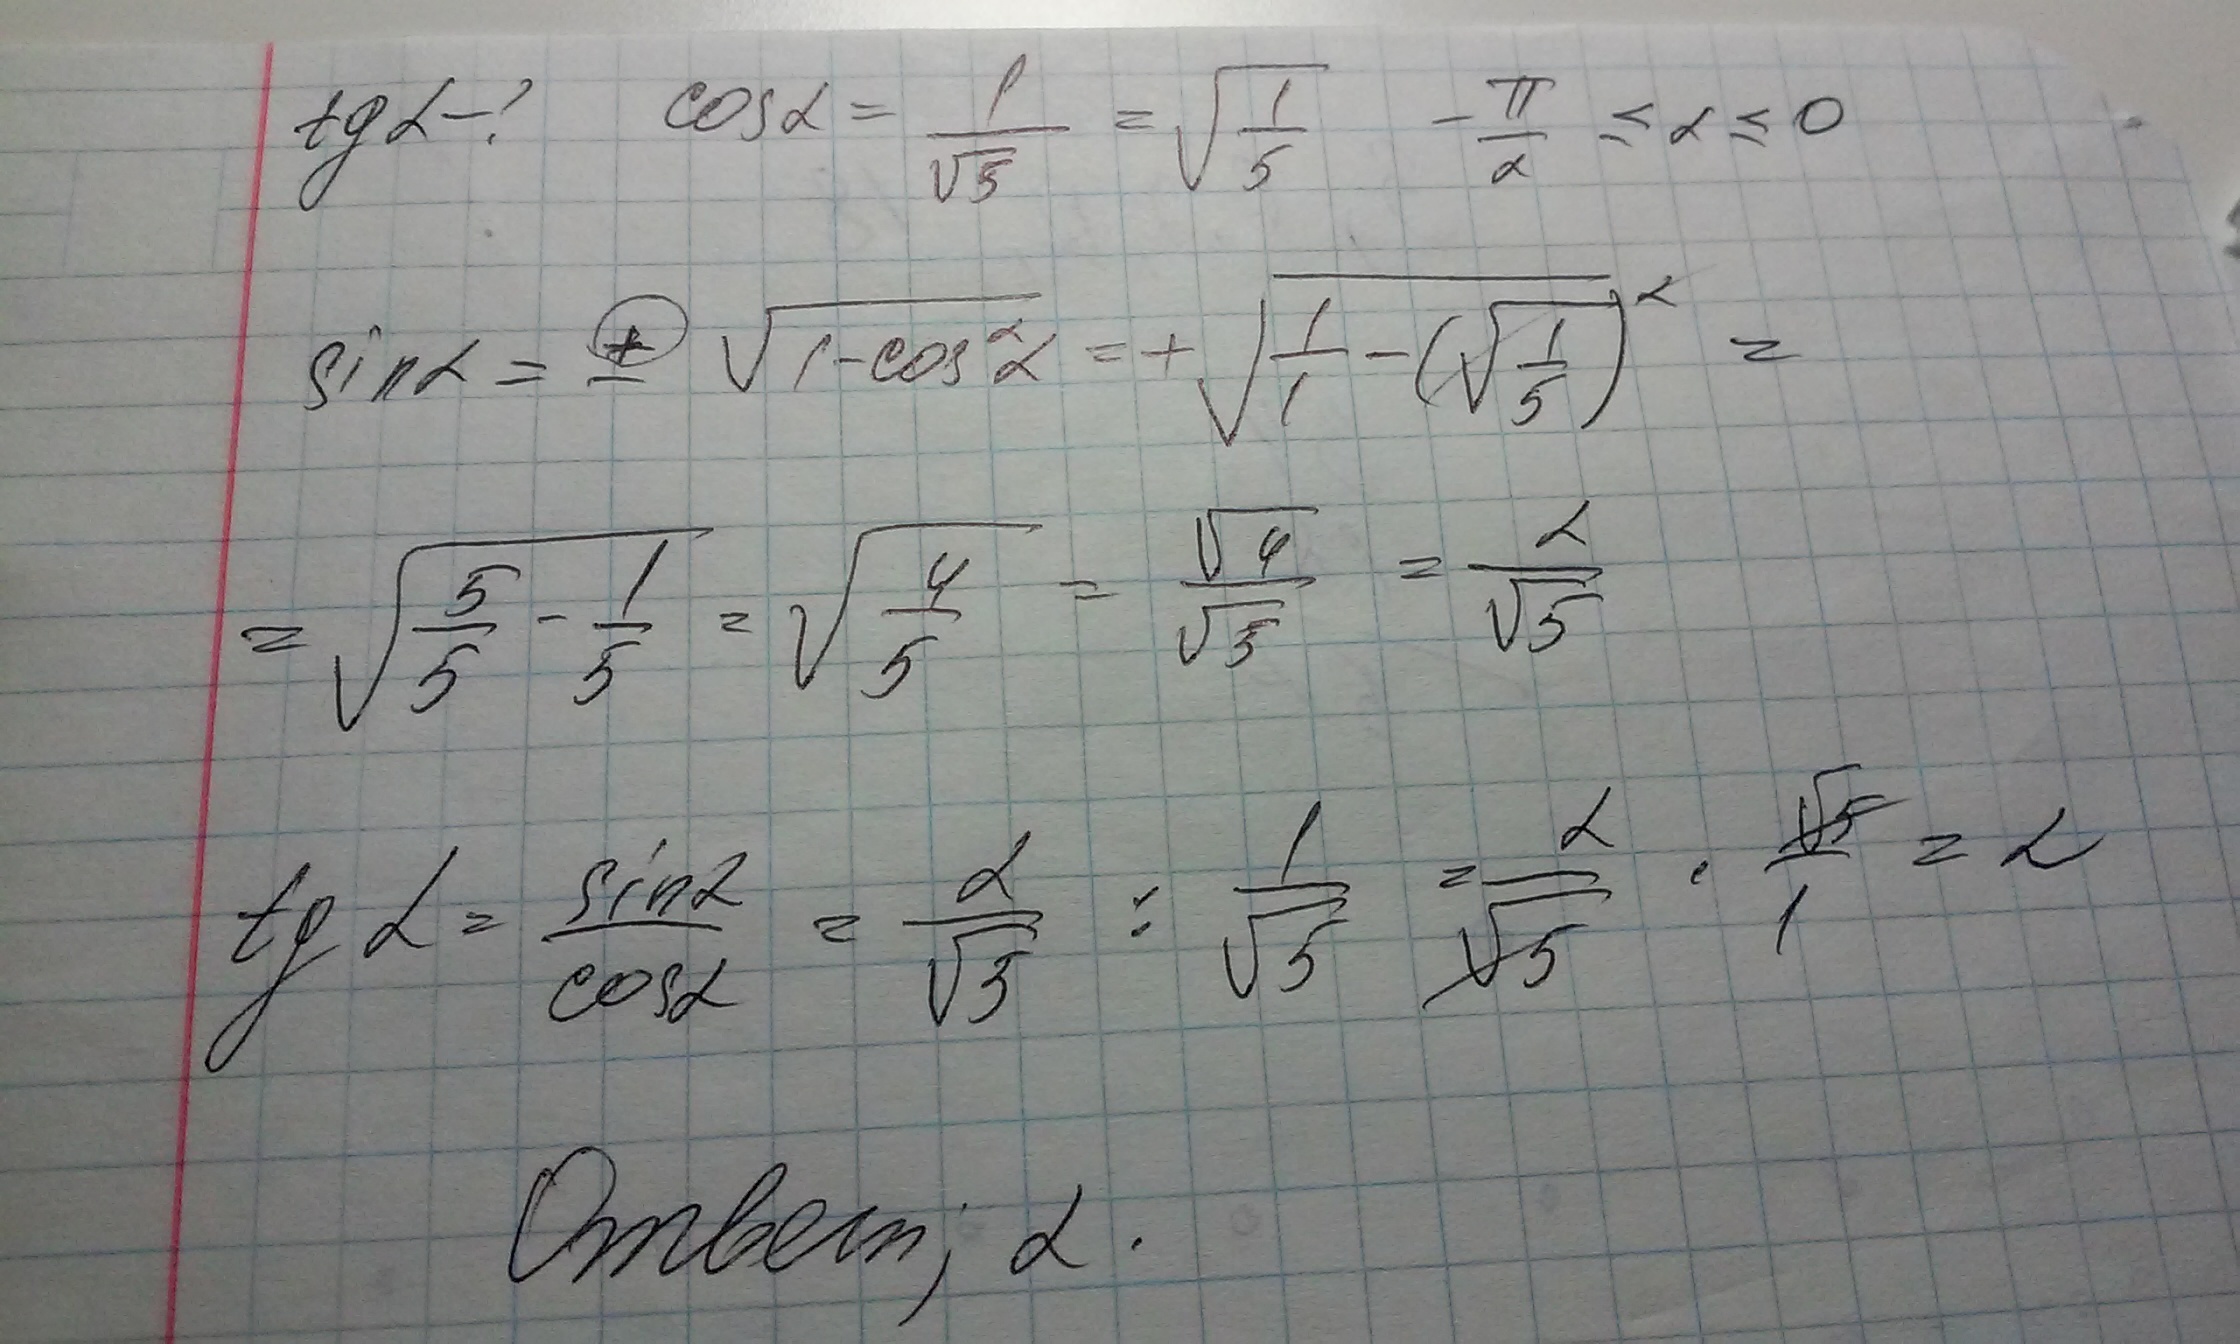 tg α - ? cos α = 1/√5 = √(1/5) -π/2 ≤ α ≤ 0
sin α = ± √(1 - cos²α) = + √(1/1 - (√(1/5))²) =
= √(5/5 - 1/5) = √(4/5) = √4/√5 = 2/√5
tg α = sin α/cos α = 2/√5 : 1/√5 = 2/√5 · √5/1 = 2
Ответ; 2.